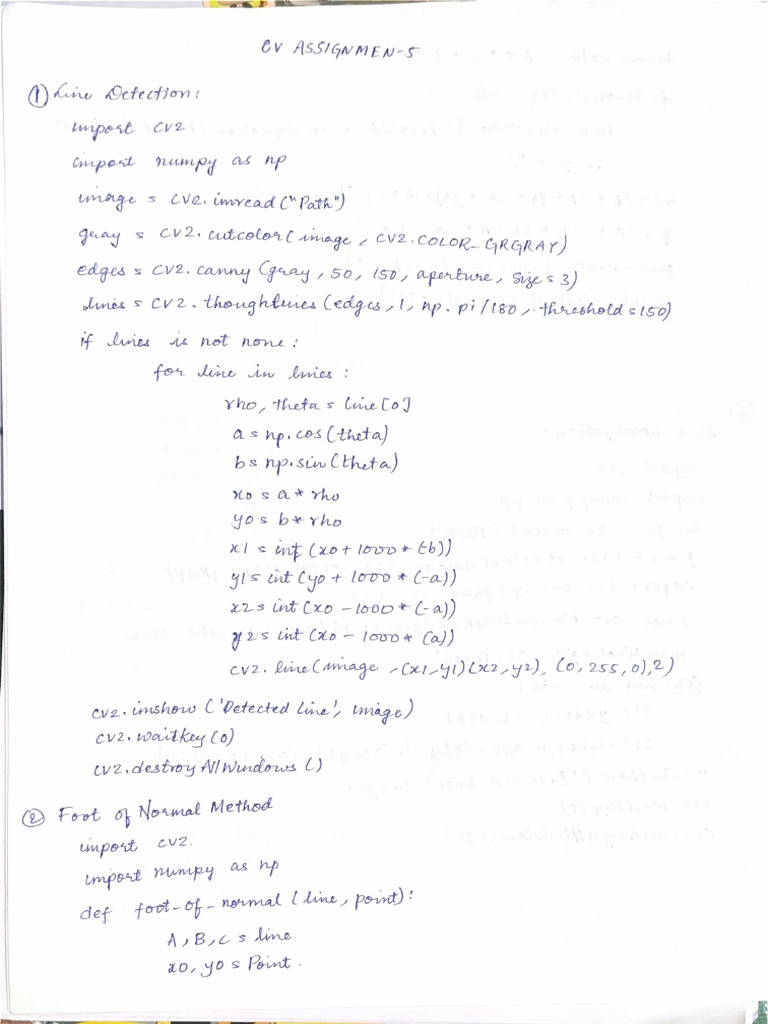 CV ASSIGNMEN-5
① Line Detection:
import cv2
import numpy as np
image = cv2.imread("Path")
gray = cv2.cutcolor(image, cv2.COLOR_GRGRAY)
edges = cv2.canny(gray, 50, 150, aperture, size = 3)
lines = cv2.thoughtlines(edges, 1, np.pi/180, threshold = 150)
if lines is not none:
for line in lines:
rho, theta = line[0]
a = np.cos(theta)
b = np.sin(theta)
x0 = a * rho
y0 = b * rho
x1 = int(x0 + 1000 * (-b))
y1 = int(y0 + 1000 * (-a))
x2 = int(x0 - 1000 * (-a))
y2 = int(x0 - 1000 * (a))
cv2.line(image, (x1, y1)(x2, y2), (0, 255, 0), 2)
cv2.imshow('Detected line', image)
cv2.waitkey(0)
cv2.destroyAllWindows()
② Foot of Normal Method
import cv2.
import numpy as np
def foot-of-normal(line, point):
A, B, C = line
x0, y0 = Point.